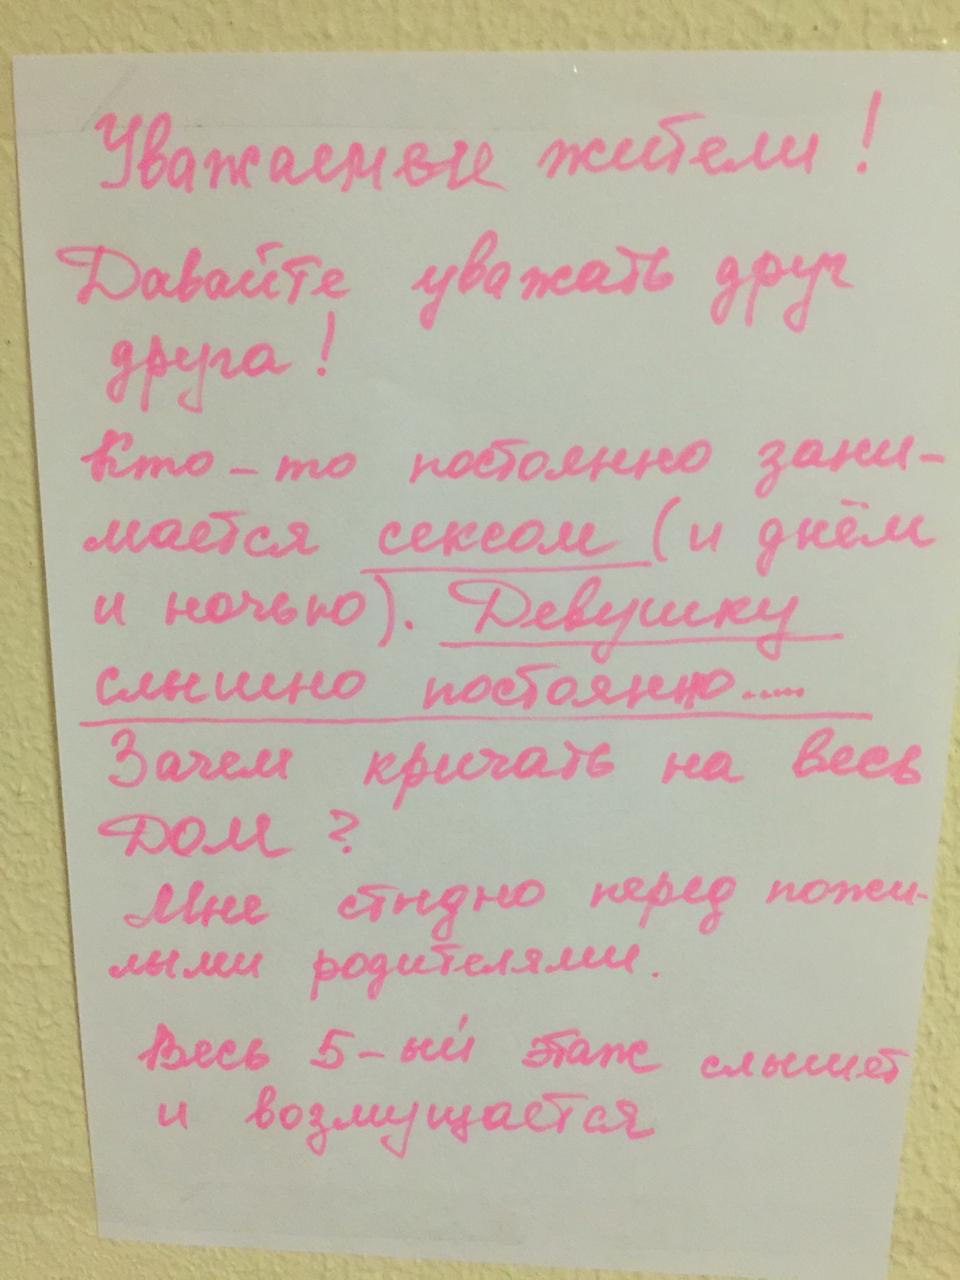 Уважаемые жители!
Давайте уважать друг
друга!
Кто-то постоянно зани-
мается сексом (и днём
и ночью). Девушку
слышно постоянно.....
Зачем кричать на весь
дом?
Мне стыдно перед пожи-
лыми родителями.
Весь 5-ый этаж слышет
и возмущается